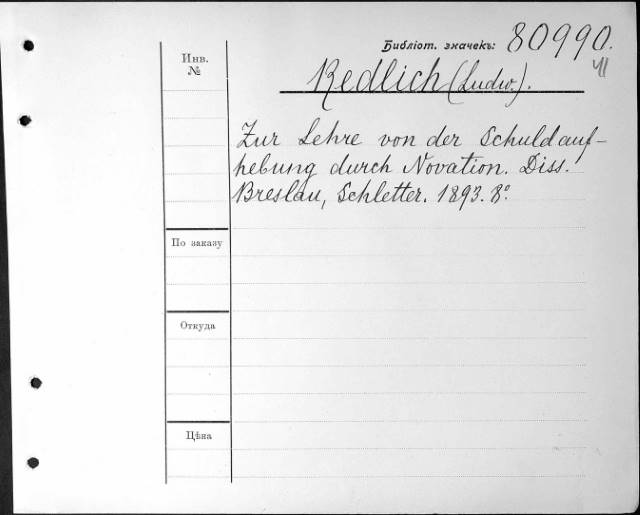 Библіот. значекъ: 80990.
Инв.
№
Redlich (Ludw.).
Zur Lehre von der Schuldauf-
hebung durch Novation. Diss.
Breslau, Schletter. 1893. 8°.
По заказу
Откуда
Цѣна